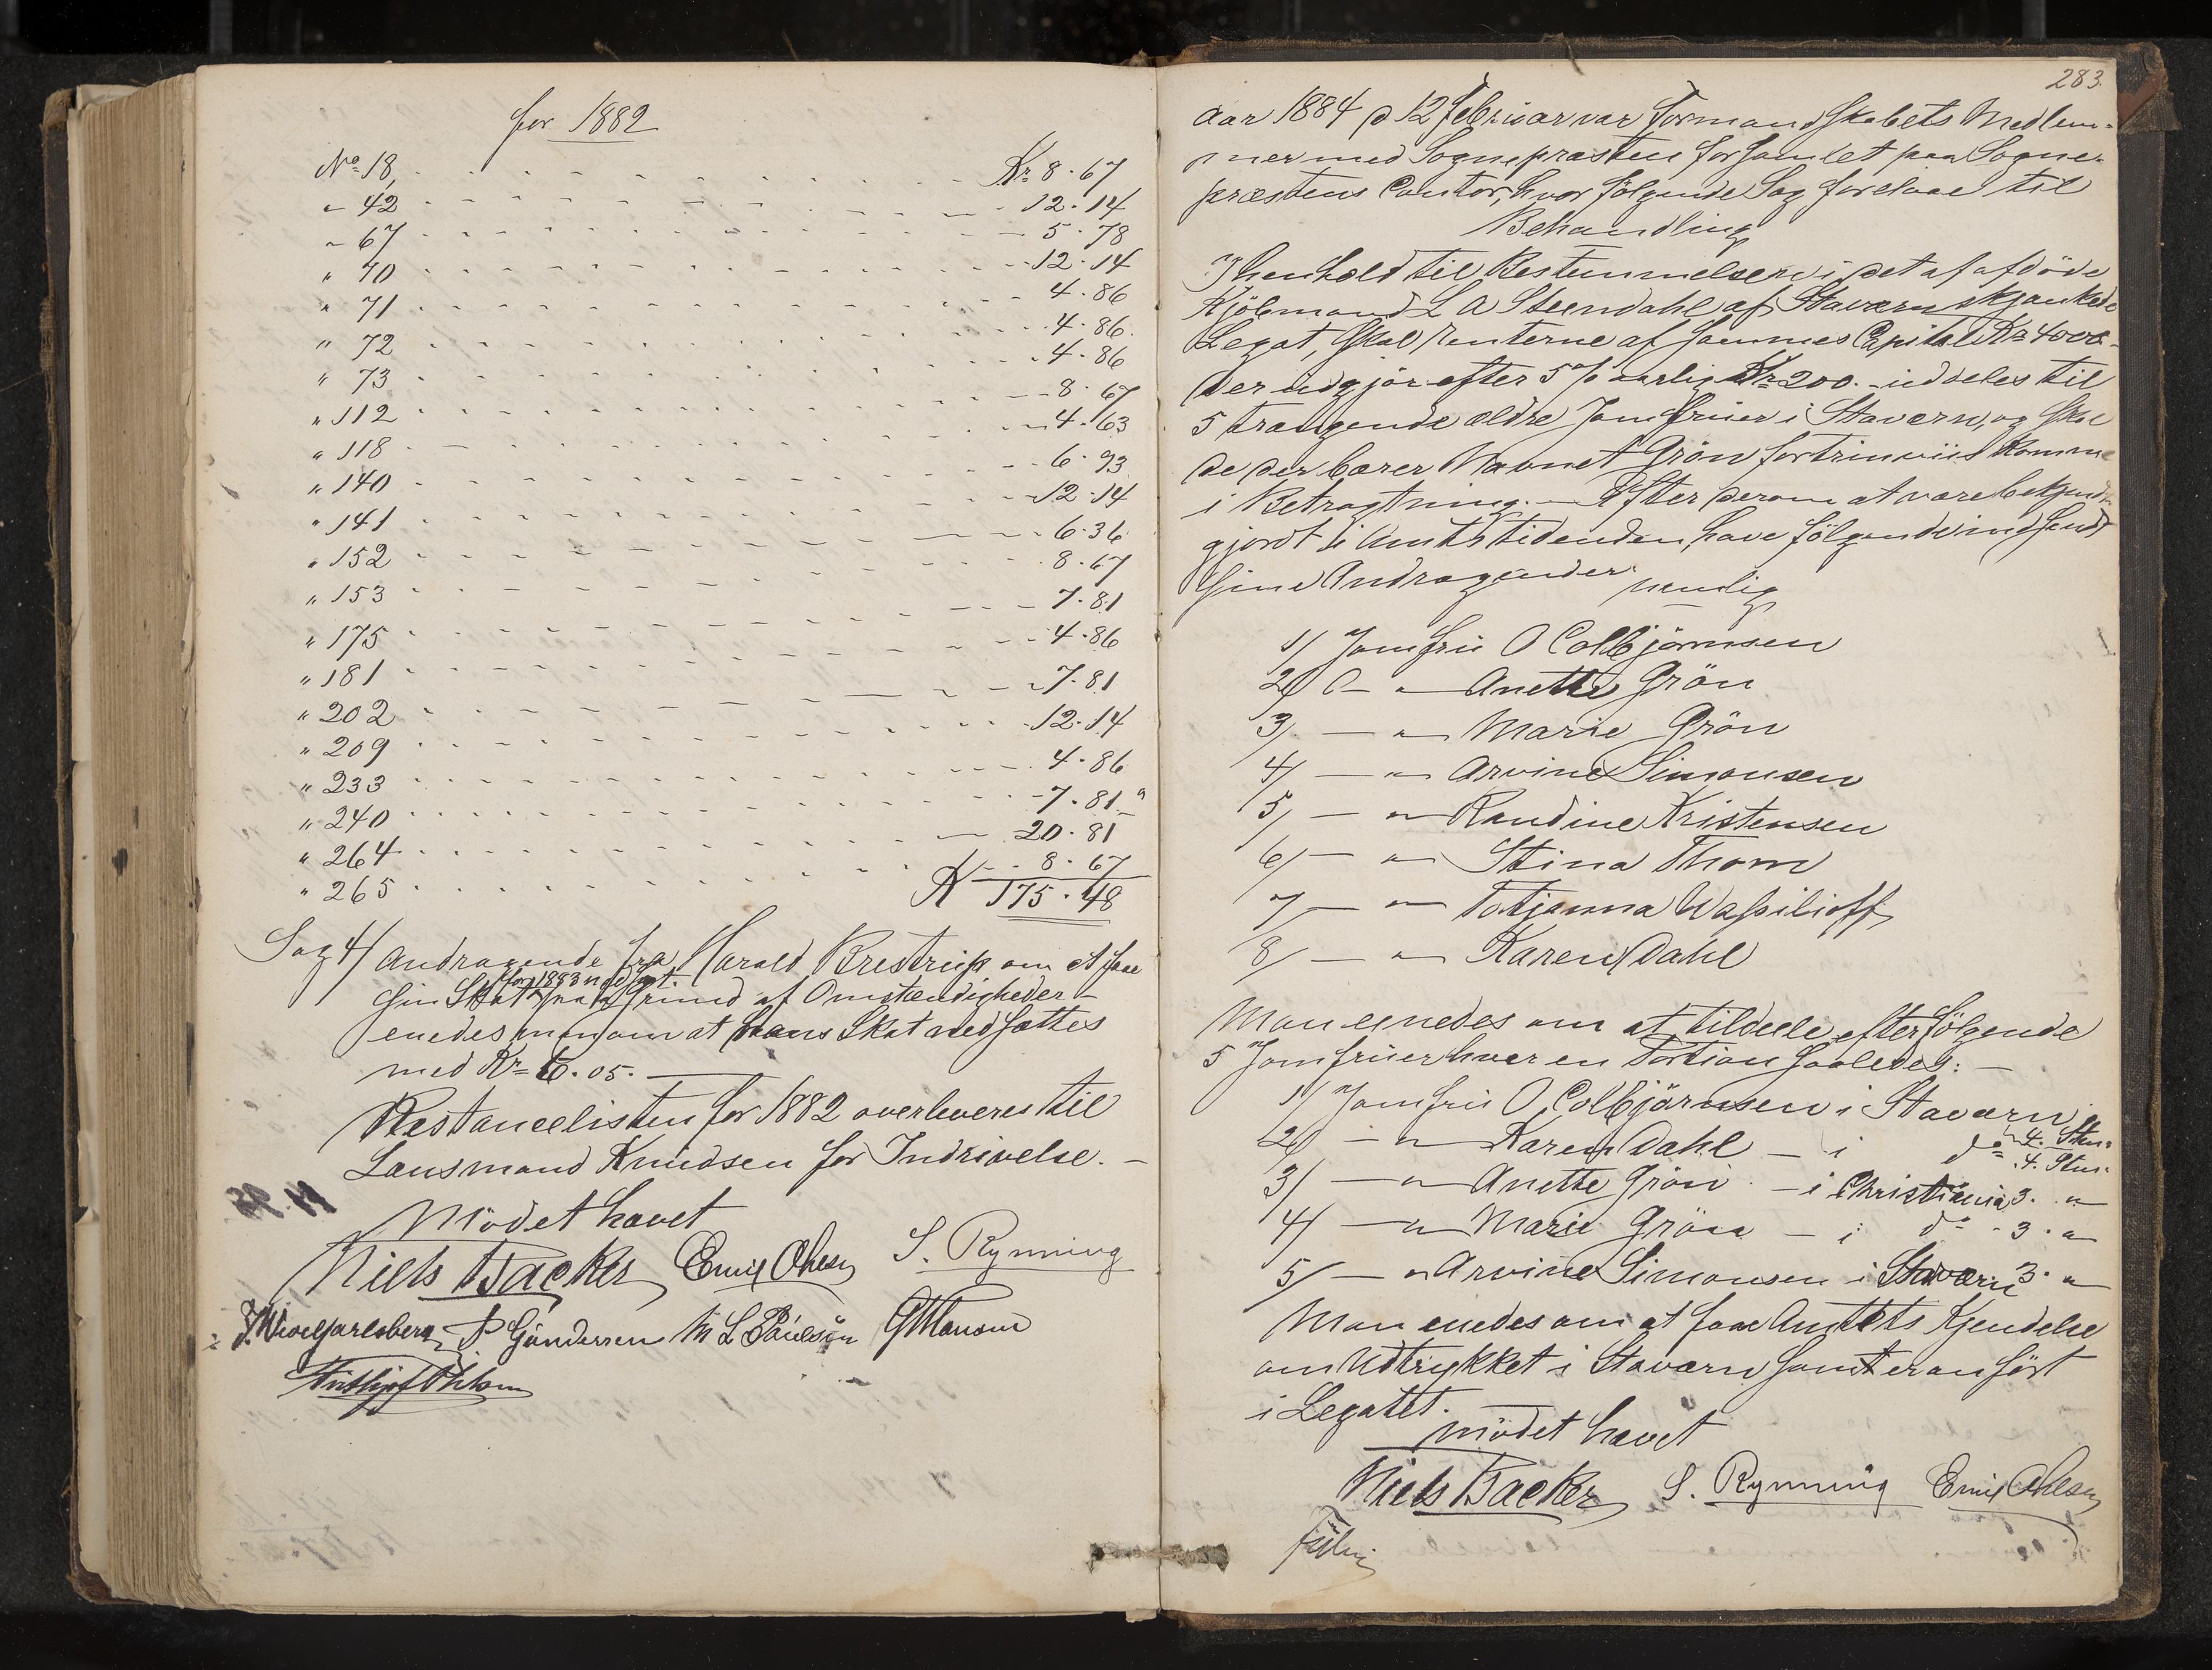 for 1882
No 18, Kr 8.67
" 42 12.14
" 67 5.78
" 70 12.14
" 71 4.86
" 72 4.86
" 73 4.86
" 112 8.67
" 118 4.63
" 140 6.93
" 141 12.14
" 152 6.36
" 153 8.67
" 175 7.81
" 181 4.86
" 202 7.81
" 209 12.14
" 233 4.86
" 240 7.81
" 264 20.81
" 265 8.67
K 175.48
Sag 4/ Andragende fra Harald Brestrup om at faae
for 1883 nedsat
sin Skat paa Grund af Omstændigheder -
enedes man om at hans Skat nedsættes
med Kr 6.05.
Restancelisten for 1882 overleveres til
Lensmand Knudsen for Indrivelse. -
Mødet hævet
Niels Backer Emil Ohlsen S. Rynning
P Gundersen M L Paulsen G Hanson
283.
Aar 1884 d 12 Februar var Formandskabets Medlem-
mer med Sognepræsten forsamlet paa Sogne-
præstens Contor, hvor følgende Sag forelaae til
Behandling
I henhold til Bestemmelsen i det af afdøde
Kjøbmand L A Steendahl af Staværn skjænkede
Legat, skal Renterne af sammes Capital Kr 4000-
der udgjør efter 5 % aarlig Kr 200.- uddeles til
5 trængende ældre Jomfruer i Staværn, og skal
de der bærer Navnet Grøn fortrinviis komme
i Betragtning. - Efter derom at være bekjendt-
gjordt i Amtstidenden, have følgende indsendt
sine Andragender nemlig
1/ Jomfru O Colbjørnsen
2/ - " - Anette Grøn
3/ - " - Marie Grøn
4/ - " - Arvine Simonsen
5/ - " - Randine Kristensen
6/ - " - Stina Thom
7/ - " - Totjanna Wassilioff
8/ - " - Karen Dahl
Man enedes om at tildele efterfølgende
5 Jomfruer hver en Portion saaledes: -
1/ Jomfru O. Colbjørnsen i Staværn 4. Stem.
2/ - " - Karen Dahl - i do 4. Stem.
3/ - " - Anette Grøn - i Christiania 3. "
4/ - " - Marie Grøn - i do - 3. "
5/ - " - Arvine Simonsen i Staværn 3. "
Man enedes om at faae Amtets Kjendelse
om Udtrykket i Staværn som er anført
i Legatet.
Mødet hævet
Niels Backer S. Rynning Emil Ohlsen